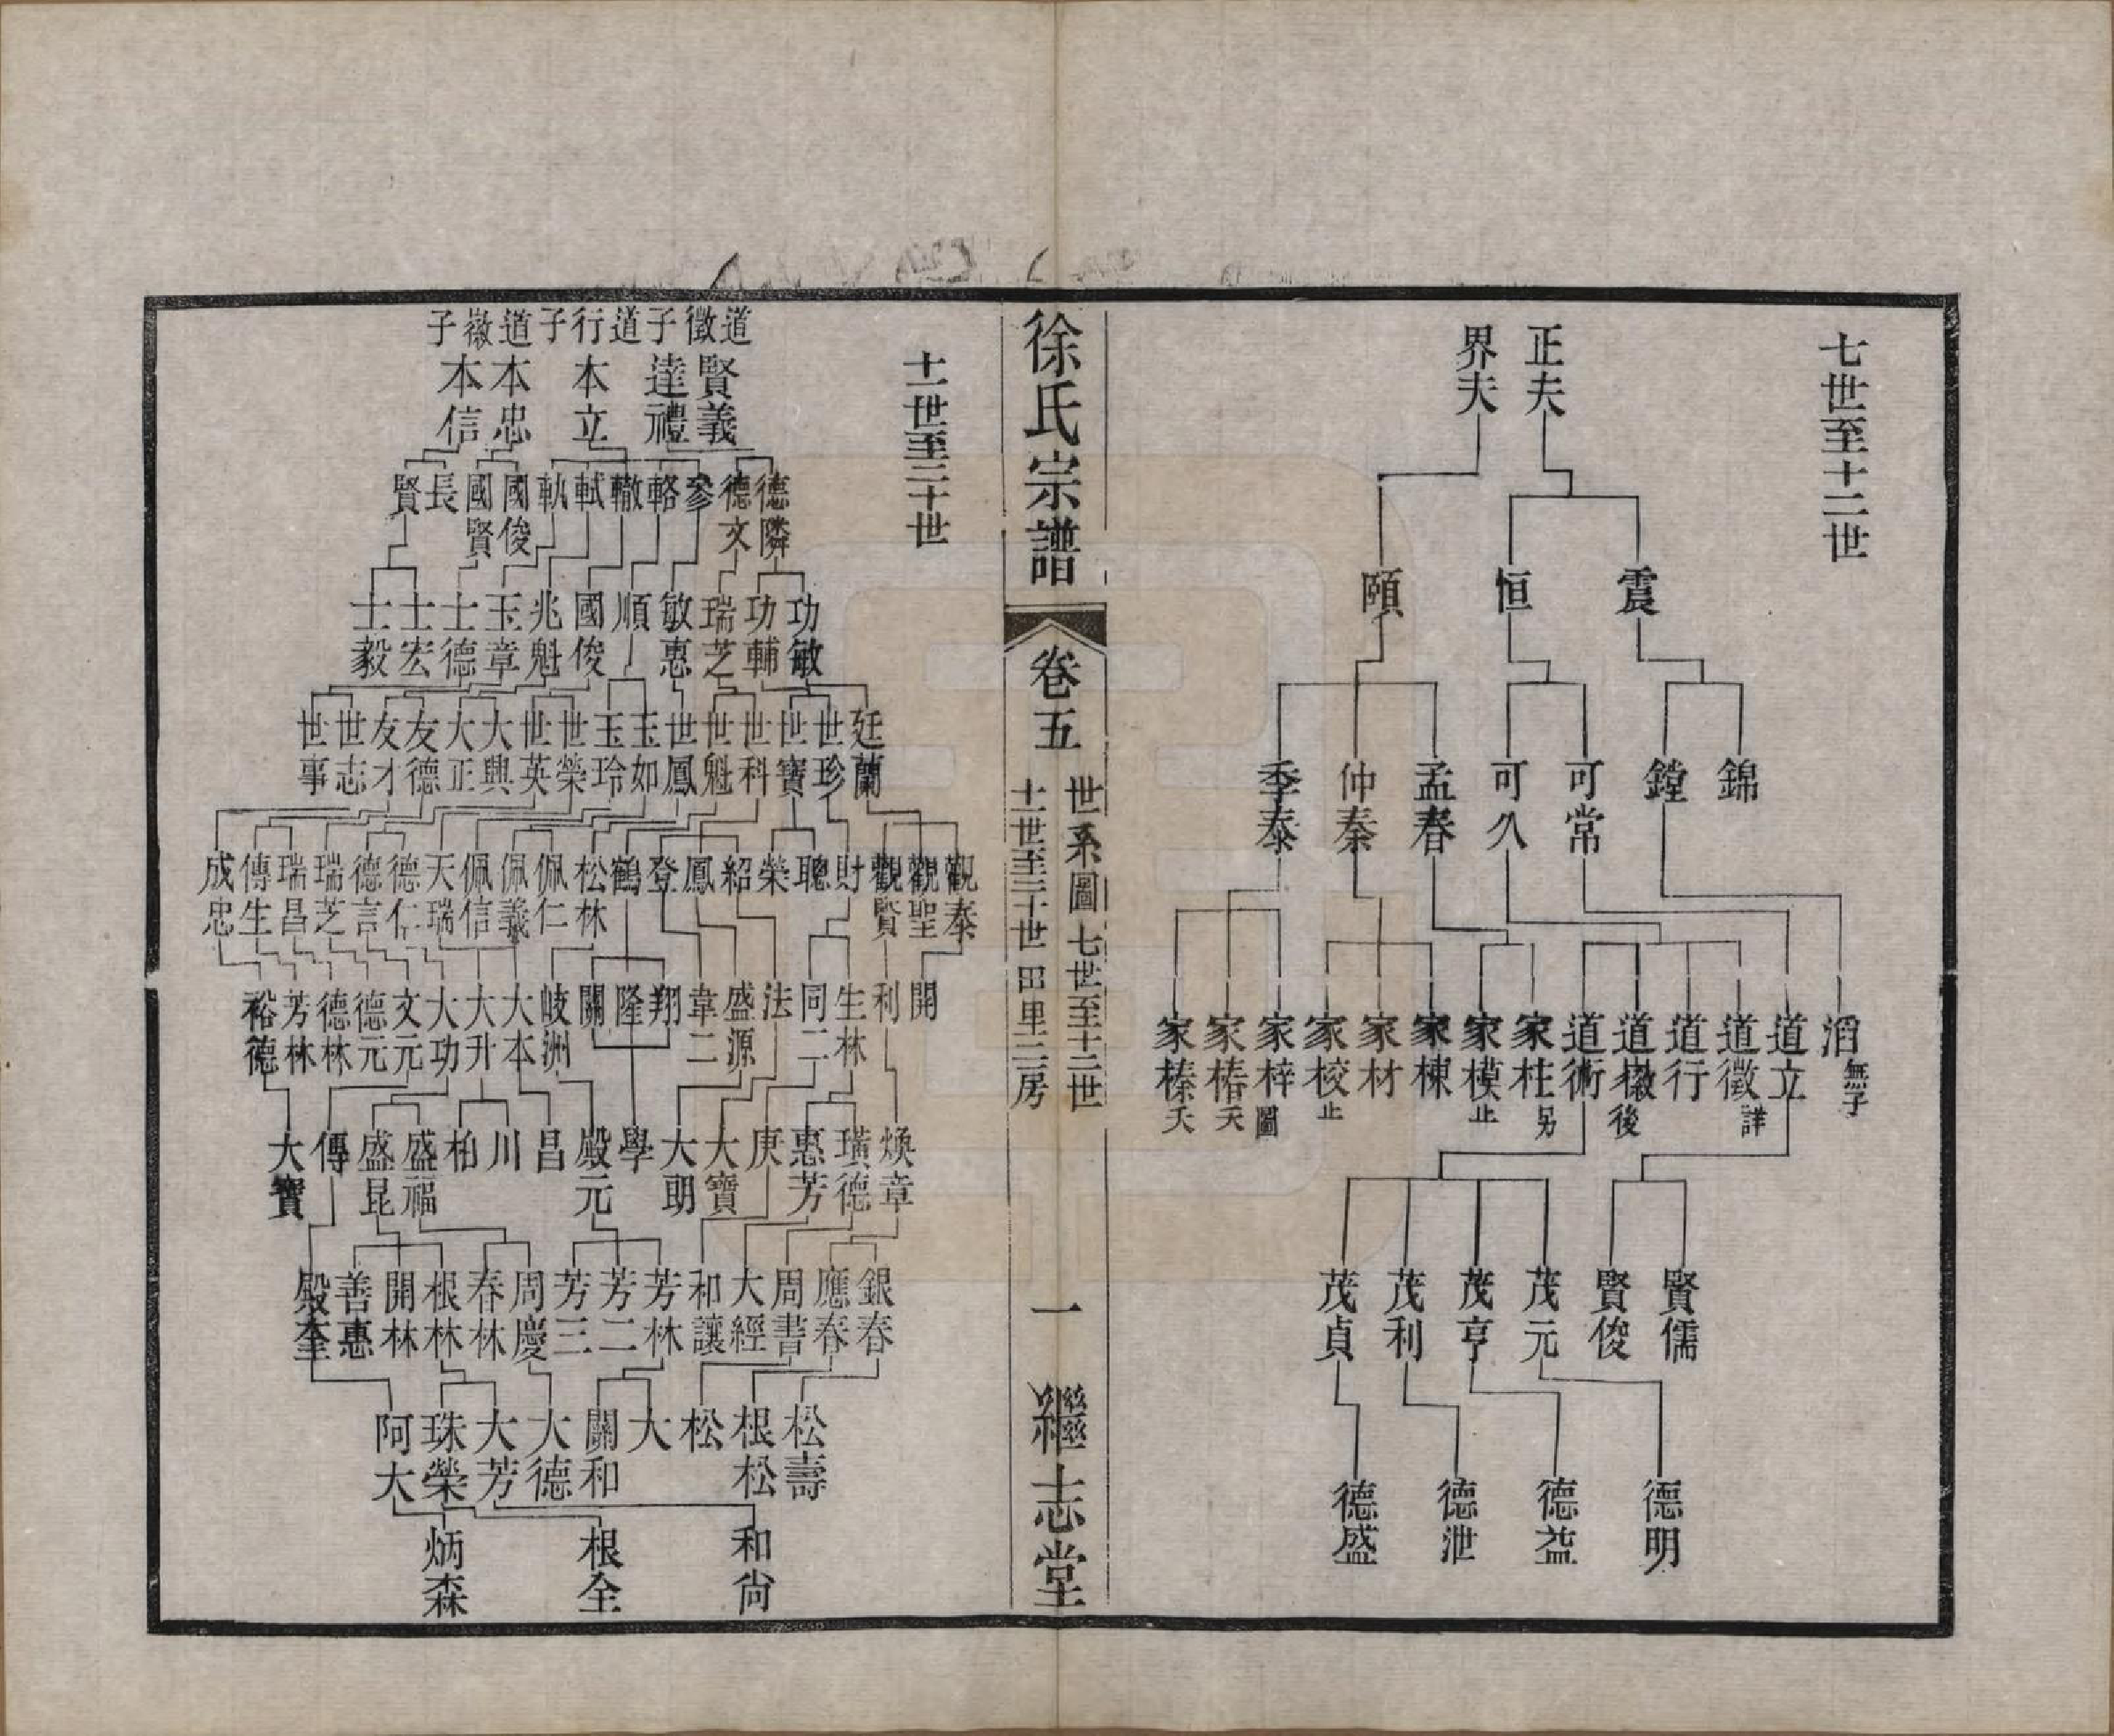 七世至十二世
正夫 界夫
震 恒 頤
錦 鏜 可常 可久 孟春 仲秦 季泰
滔無子 道立 道徵 道行 道徽 道術 家柱 家模 家棟 家材 家校 家梓 家椿 家榛
詳 後 另 止 止 圖 夭 夭
賢儒 賢俊 茂元 茂亨 茂利 茂貞
德明 德益 德泄 德盛
徐氏宗譜
卷五
世系圖 七世至十二世
十一世至二十世 田里二房
一
繼志堂
十一世至二十世
道徵子 道行子 道徽子
賢義 達禮 本立 本忠 本信
德隣 德文 參 輅 轍 軾 軌 國俊 國賢 長 賢
功敏 功輔 瑞芝 敏惠 順 國俊 兆魁 玉章 士德 士宏 士毅
廷蘭 世珍 世寶 世科 世魁 世鳳 玉如 玉玲 世榮 世英 大興 大正 友德 友才 世志 世事
觀泰 觀聖 觀賢 財 聰 榮 紹 鳳 登 鶴 松林 佩仁 佩義 佩信 天瑞 德仁 德言 瑞芝 瑞昌 傳生 成忠
開 利 生林 同二 法 盛源 韋二 翔 隆 關 岐洲 大本 大升 大功 文元 德元 德林 芳林 裕德
煥章 璜德 惠芳 庚 大寶 大明 學 殿元 昌 川 柏 盛福 盛昆 傳 大寶
銀春 應春 周書 大經 和讓 芳林 芳二 芳三 周慶 春林 根林 開林 善惠 殿奎
松壽 根松 松 大 關和 大德 大芳 珠榮 阿大
和尙 根全 炳森